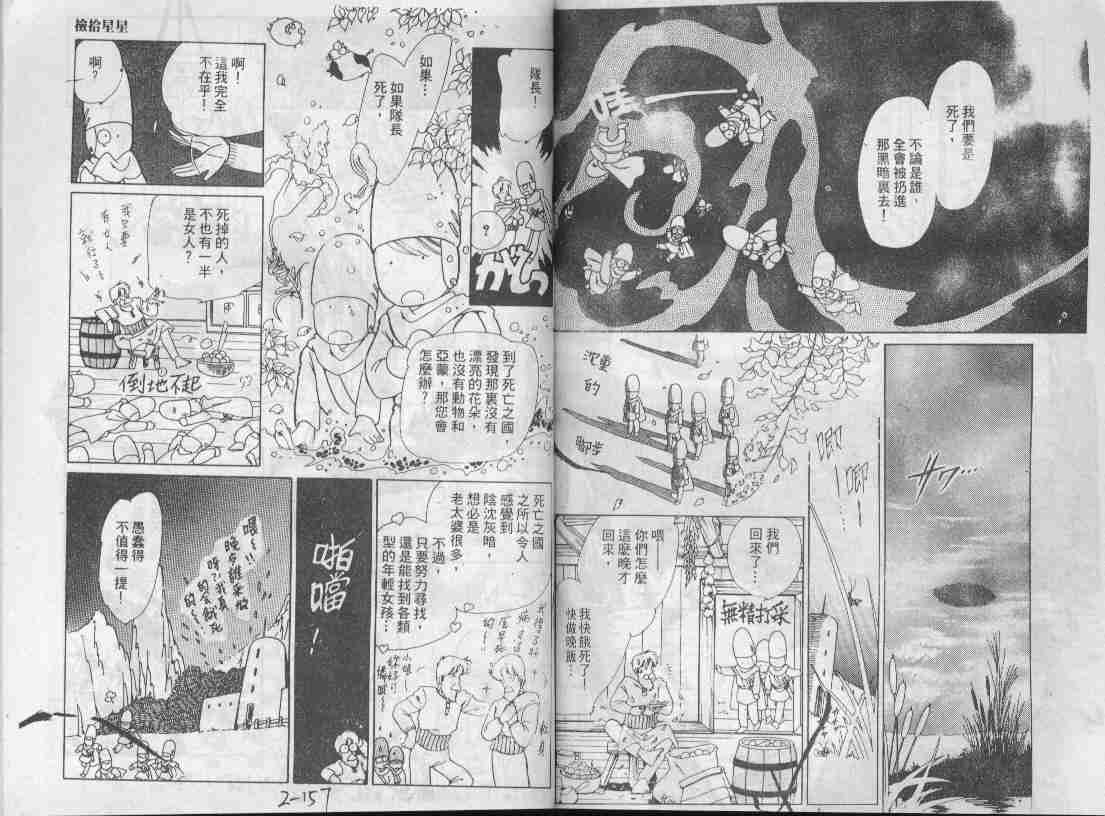 撿拾星星
我們要是
死了，
不論是誰，
全會被扔進
那黑暗裏去！
哇
サワ…
叩
叩
沈重
的
腳步
我們
回來了…
無精打采
喂——
你們怎麼
這麼晚才
回來，
我快餓死了！
快做晚飯！
隊長！
？
如果…
如果隊長
死了，
到了死亡之國，
發現那裏沒有
漂亮的花朵，
也沒有動物和
亞蒙，那您會
怎麼辦？
啊！
這我完全
不在乎！
啊？
死掉的人，
不也有一半
是女人？
我只要
有女人
就行了
倒地不起
死亡之國
之所以令人
感覺到
陰沈灰暗，
想必是
老太婆很多，
不過，
只要努力尋找，
還是能找到各類
型的年輕女孩…
啪
噹
！
愚蠢得
不值得一提！
喂
2-157